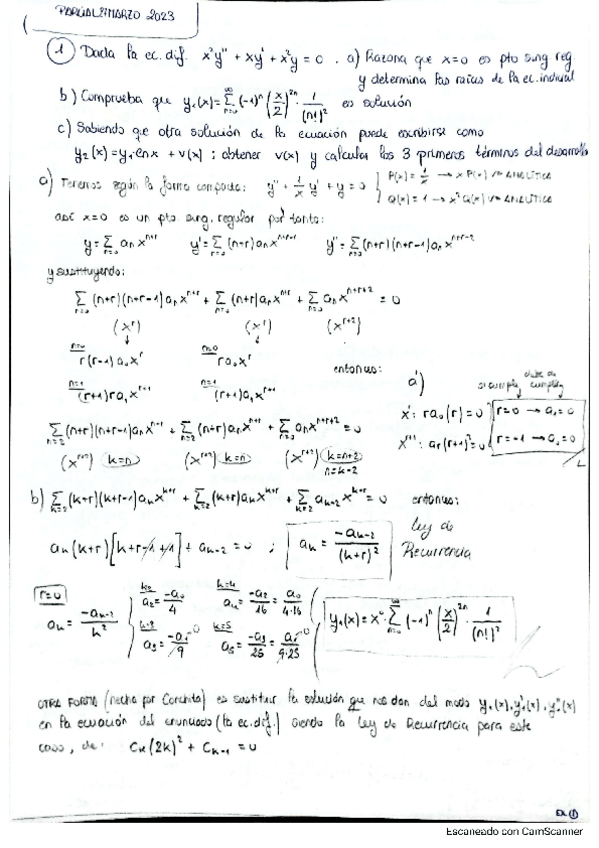 PARCIAL MARZO 2023
1 Dada la ec. dif. x²y'' + xy' + x²y = 0 . a) Razona que x=0 es pto sing reg.
y determina las raíces de la ec. indicial
b) Comprueba que y₁(x) = Σ_{n=0}^∞ (-1)ⁿ (x/2)^{2n} · 1/(n!)² es solución
c) Sabiendo que otra solución de la ecuación puede escribirse como
y₂(x) = y₁ lnx + v(x) ; obtener v(x) y calcular los 3 primeros términos del desarrollo
a) Tenemos según la forma y'' + 1/x y' + y = 0
P(x) = 1/x → x P(x) ANALÍTICA
Q(x) = 1 → x² Q(x) ANALÍTICA
así x=0 es un pto sing. regular por tanto:
y = Σ_{n=0} aₙ x^{n+r} y' = Σ_{n=0} (n+r) aₙ x^{n+r-1} y'' = Σ_{n=0} (n+r)(n+r-1) aₙ x^{n+r-2}
y sustituyendo:
Σ_{n=0} (n+r)(n+r-1) aₙ x^{n+r} + Σ_{n=0} (n+r) aₙ x^{n+r} + Σ_{n=0} aₙ x^{n+r+2} = 0
(x^r) (x^r) (x^{r+2})
n=0 r(r-1) a₀ x^r n=0 r a₀ x^r
entonces:
n=1 (r+1) r a₁ x^{r+1} n=1 (r+1) a₁ x^{r+1}
a') si cumple debe de cumplir
x^r: r a₀ (r) = 0 r=0 → a₁=0
x^{r+1}: a₁ (r+1)² = 0 r=-1 → a₀=0
Σ_{n=2} (n+r)(n+r-1) aₙ x^{n+r} + Σ_{n=2} (n+r) aₙ x^{n+r} + Σ_{n=0} aₙ x^{n+r+2} = 0
(x^{r+2}) k=n (x^{r+2}) k=n (x^{r+2}) k=n+2
n=k-2
b) Σ_{k=2} (k+r)(k+r-1) aₖ x^{k+r} + Σ_{k=2} (k+r) aₖ x^{k+r} + Σ_{k=2} a_{k-2} x^{k+r} = 0 entonces:
aₖ (k+r) [k+r-1+1] + a_{k-2} = 0 ; aₖ = -a_{k-2}/(k+r)² Ley de
Recurrencia
r=0
aₖ = -a_{k-2}/k²
k=2 a₂ = -a₀/4 k=4 a₄ = -a₂/16 = a₀/4·16
k=3 a₃ = -a₁/9 0 k=5 a₅ = -a₃/25 = a₁/9·25 0
y₁(x) = x⁰ Σ_{n=0}^∞ (-1)ⁿ (x/2)^{2n} · 1/(n!)²
OTRA FORMA (hecha por Conchita) es sustituir la solución que nos dan del modo y₁(x), y₁'(x), y₁''(x)
en la ecuación del enunciado (la ec. dif.) siendo la Ley de Recurrencia para este
caso, de: Cₖ (2k)² + C_{k-1} = 0
EX. 1
Escaneado con CamScanner